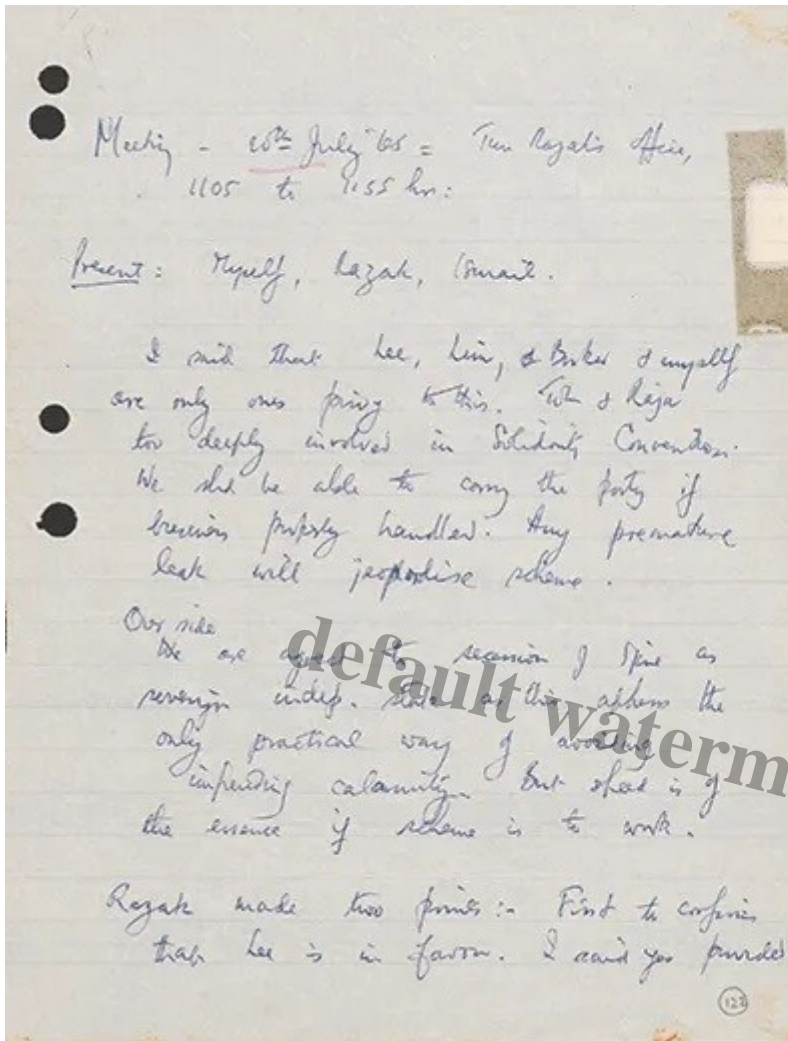 Meeting - 20th July '65 = Tun Razak's office,
1105 to 1155 hrs:
Present: Myself, Razak, Ismail.
I said that Lee, Lim, & Barker & myself
are only ones privy to this. Toh & Raja
too deeply involved in Solidarity Convention.
We shd be able to carry the party if
business properly handled. Any premature
leak will jeopardise scheme.
Our side
We are to secession of S'pore as
sovereign indep. state as this the
only practical way of avoiding
impending calamity. But speed is of
the essence if scheme is to work.
Razak made two points:- First to confirm
that Lee is in favour. I said yes provided
122
default waterm